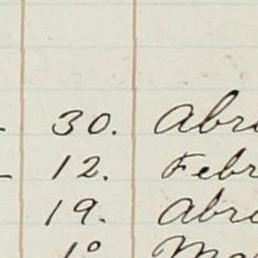 30. Abr
12. Febr
19. Abr
1º Ma